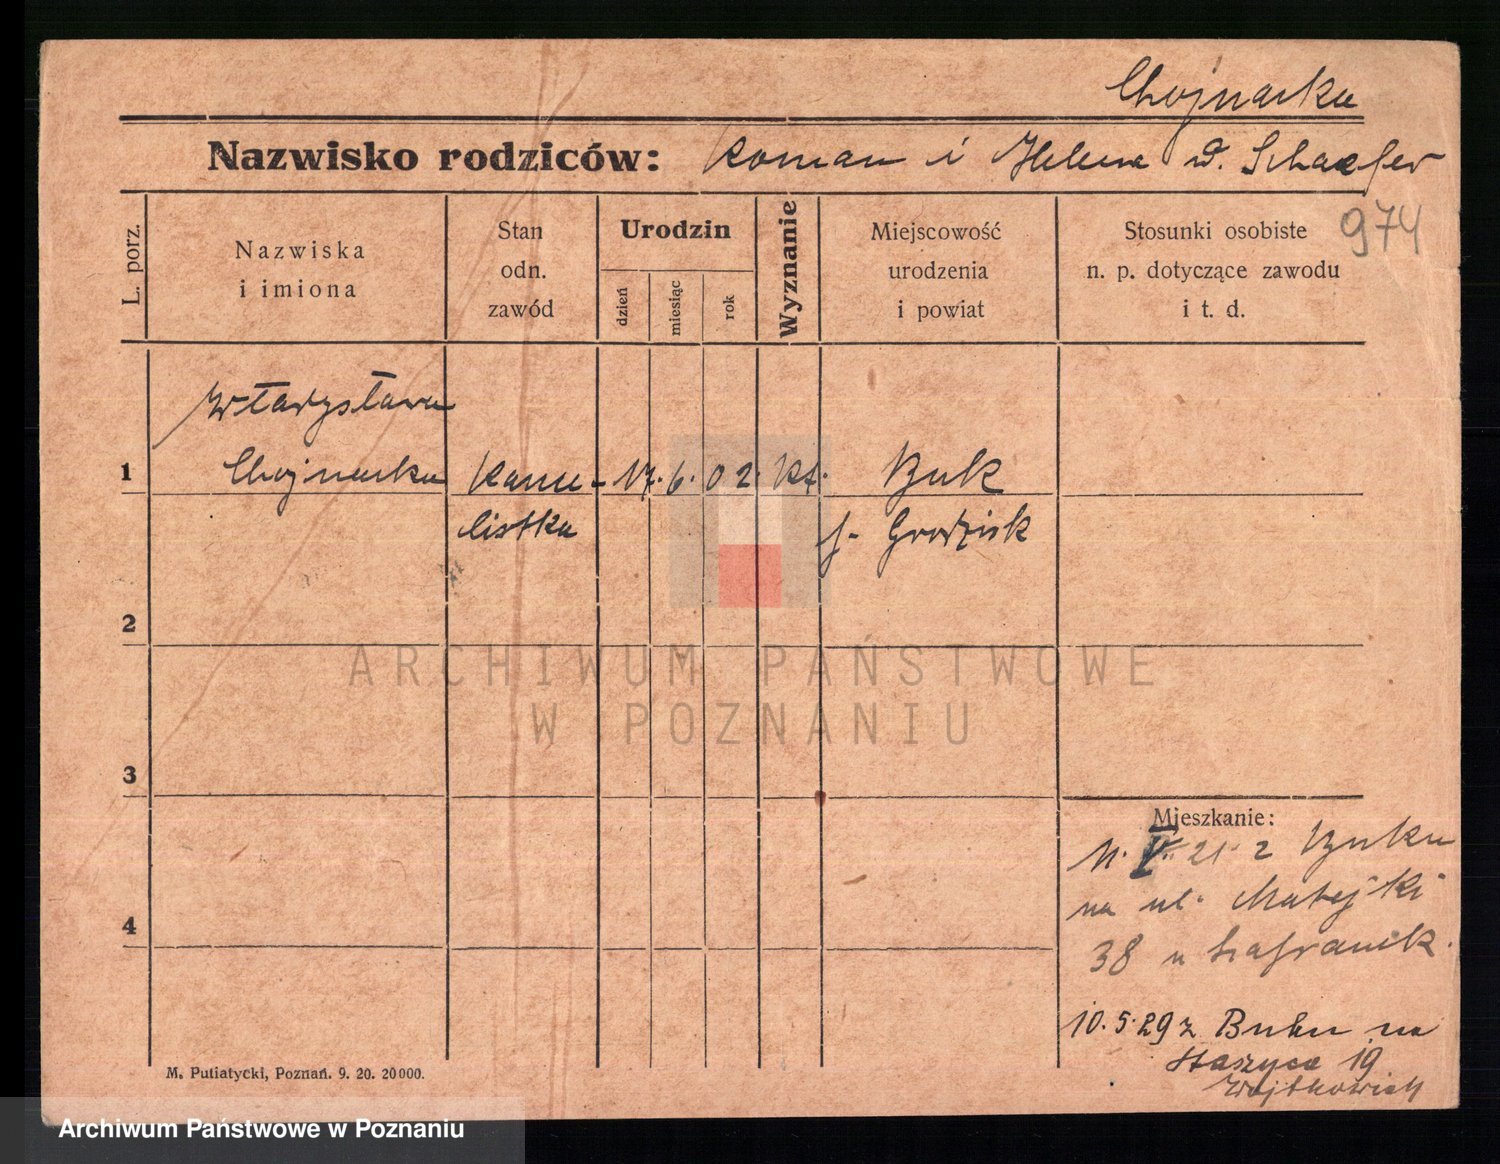 Chojnacka
Nazwisko rodziców: Roman i Helena d. Schaefer
974
L. porz.
Nazwiska
i imiona
Stan
odn.
zawód
Urodzin
dzień
miesiąc
rok
Wyznanie
Miejscowość
urodzenia
i powiat
Stosunki osobiste
n. p. dotyczące zawodu
i t. d.
Władysława
1 Chojnacka Kance- 17. 6. 02. kt. Buk
listka Grodzisk
2
ARCHIWUM PAŃSTWOWE
W POZNANIU
3
Mieszkanie:
21 z Buku
na ul. Matejki
4
38 u Szafranek.
10. 5. 29 z Buku na
Staszyca 19
Wojtkowiak
M. Putiatycki, Poznań. 9. 20. 20 000.
Archiwum Państwowe w Poznaniu